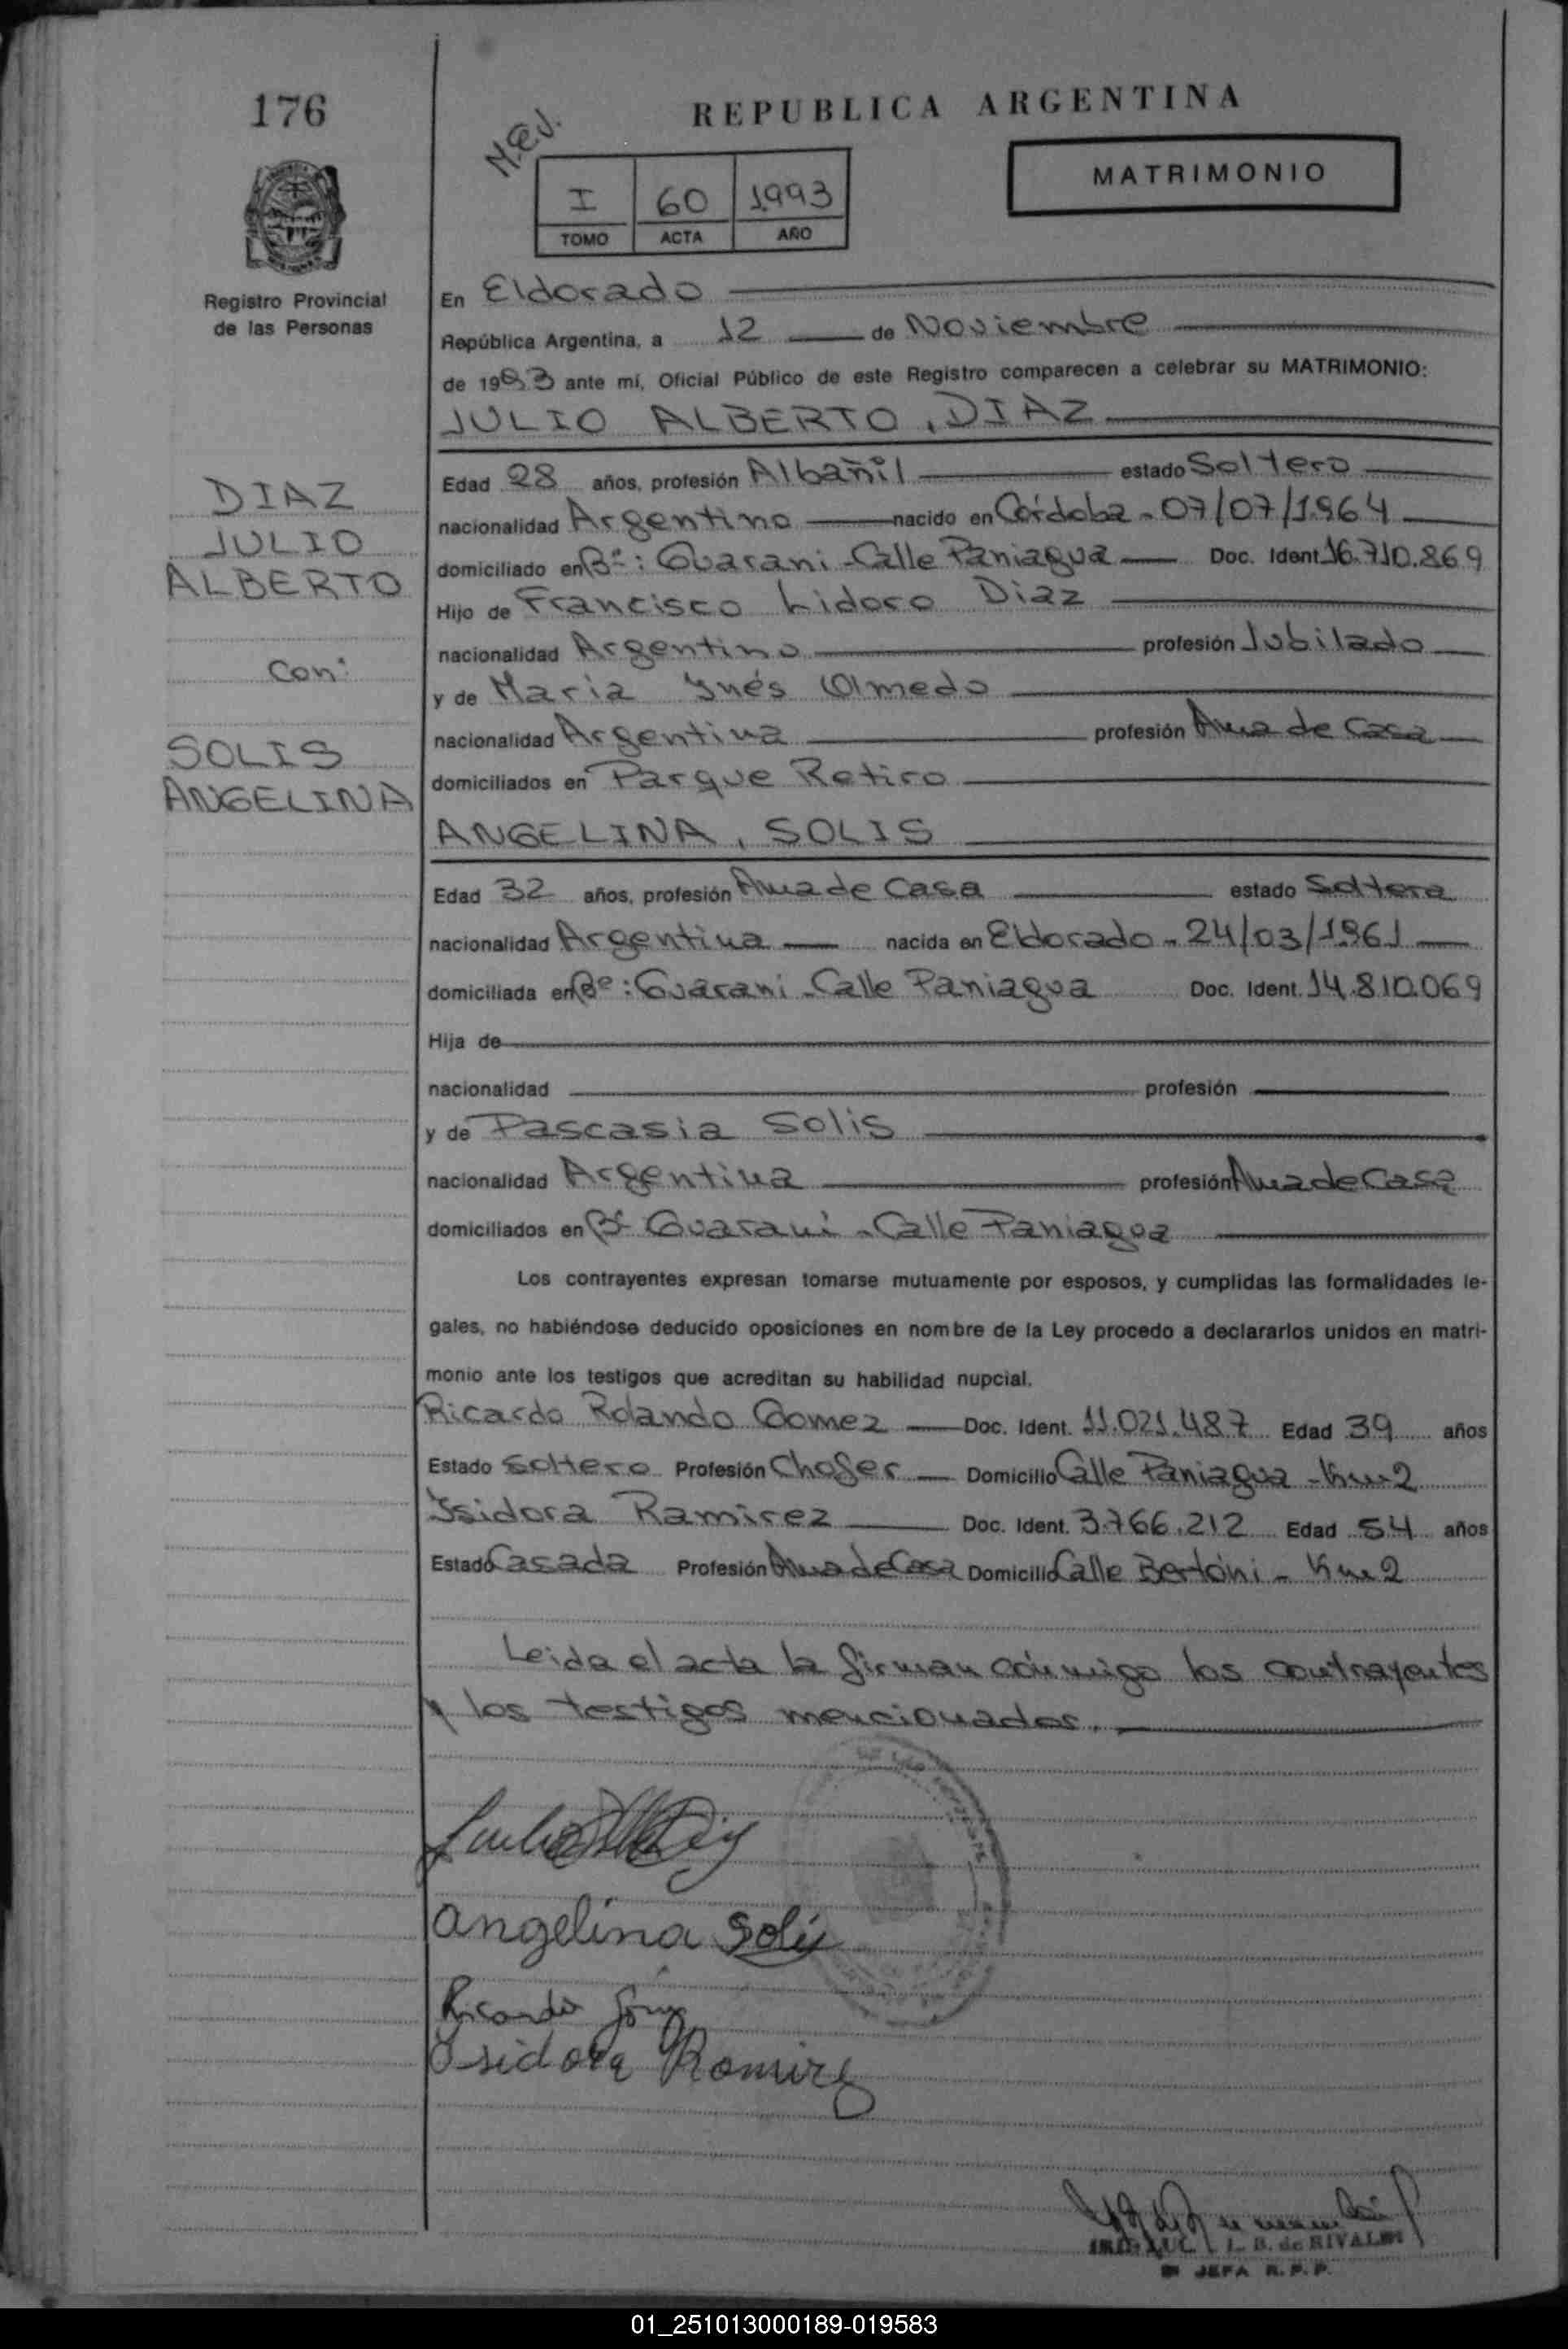 176
REPUBLICA ARGENTINA
MATRIMONIO
I 60 1993
TOMO ACTA AÑO
Registro Provincial
de las Personas
En Eldorado
República Argentina, a 12 de Noviembre
de 1993 ante mí, Oficial Público de este Registro comparecen a celebrar su MATRIMONIO:
JULIO ALBERTO, DIAZ
DIAZ
JULIO
ALBERTO
Con:
SOLIS
ANGELINA
Edad 28 años, profesión Albañil estado Soltero
nacionalidad Argentino nacido en Córdoba - 07/07/1964
domiciliado en Bº: Guarani - Calle Paniagua Doc. Ident. 16.710.869
Hijo de Francisco Lidoro Diaz
nacionalidad Argentino profesión Jubilado
y de Maria Ynés Olmedo
nacionalidad Argentina profesión Ama de Casa
domiciliados en Parque Retiro
ANGELINA, SOLIS
Edad 32 años, profesión Ama de Casa estado Soltera
nacionalidad Argentina nacida en Eldorado - 24/03/1961
domiciliada en Bº: Guarani - Calle Paniagua Doc. Ident. 14.810.069
Hija de
nacionalidad profesión
y de Pascasia Solis
nacionalidad Argentina profesión Ama de Casa
domiciliados en Bº Guarani - Calle Paniagua
Los contrayentes expresan tomarse mutuamente por esposos, y cumplidas las formalidades le-
gales, no habiéndose deducido oposiciones en nombre de la Ley procedo a declararlos unidos en matri-
monio ante los testigos que acreditan su habilidad nupcial.
Ricardo Rolando Gomez Doc. Ident. 11.021.487 Edad 39 años
Estado Soltero Profesión Chofer Domicilio Calle Paniagua - Km 2
Ysidora Ramirez Doc. Ident. 3.766.212 Edad 54 años
Estado Casada Profesión Ama de Casa Domicilio Calle Bertóni - Km 2
Leida el acta la firman conmigo los contrayentes
y los testigos mencionados.
Angelina Solis
Ricardo Gomez
Isidora Ramirez
L. B. de RIVALDI
JEFA R. P. P.
01_251013000189-019583